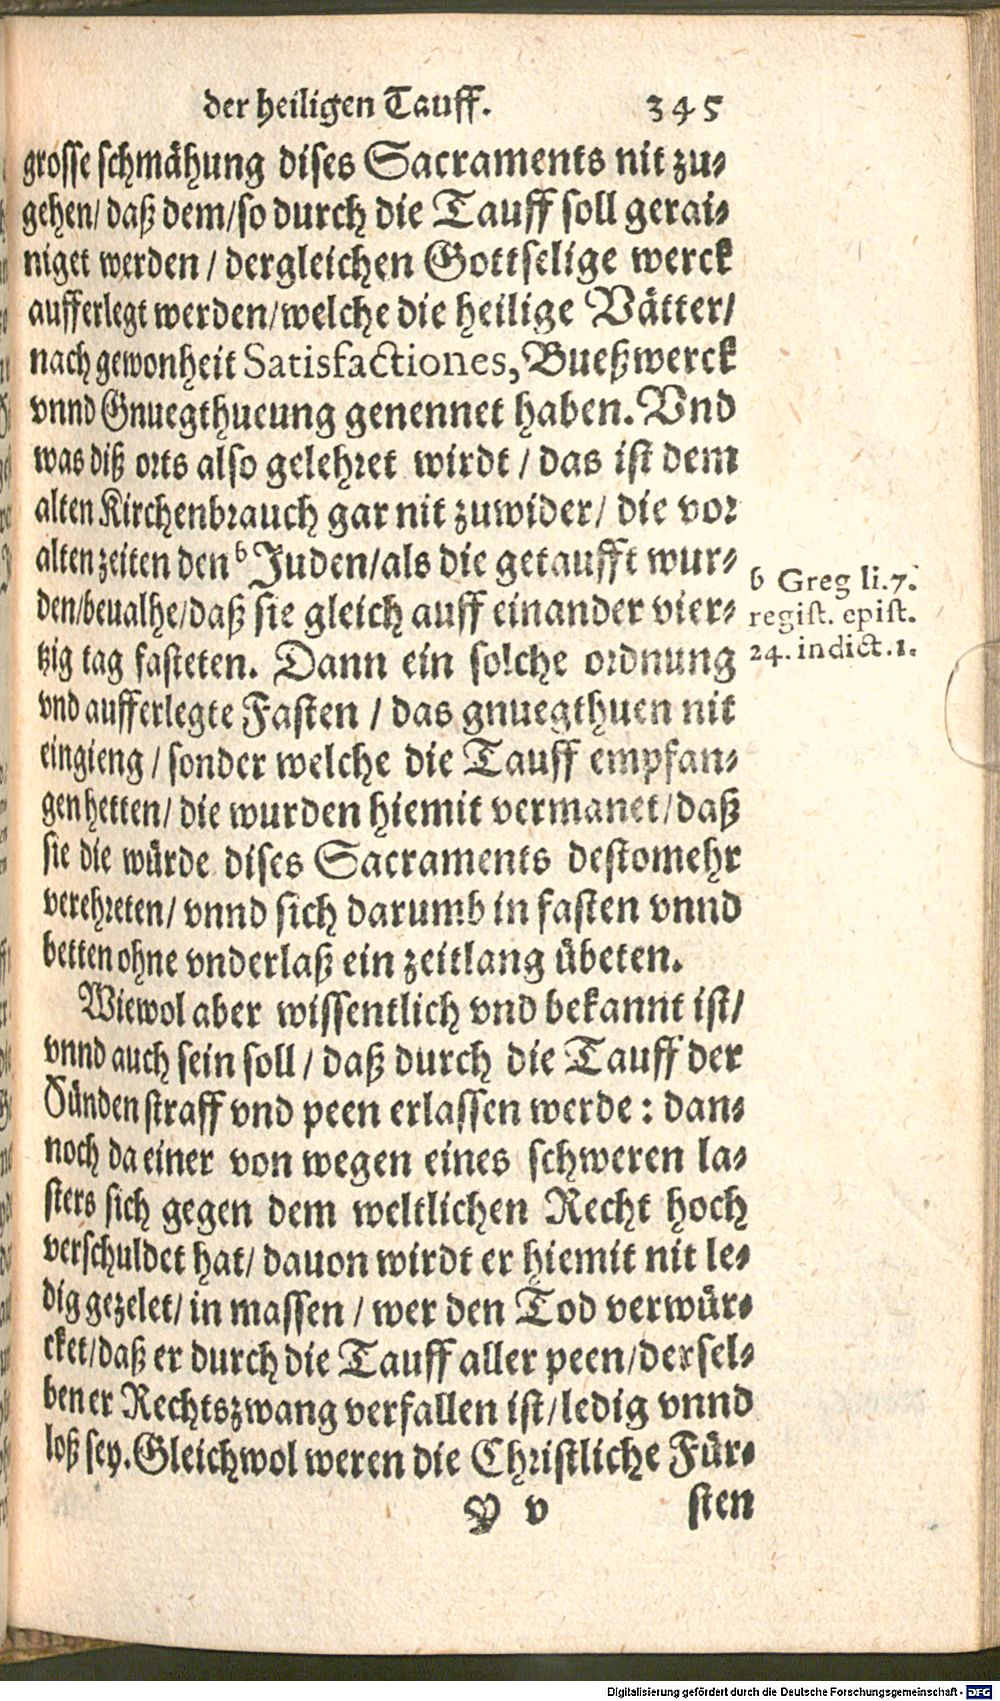 der heiligen Tauff. 345
grosse schmähung dises Sacraments nit zu-
gehen/ daß dem/ so durch die Tauff soll gerai-
niget werden / dergleichen Gottselige werck
aufferlegt werden/ welche die heilige Vätter/
nach gewonheit Satisfactiones, Bueßwerck
vnnd Gnuegthueung genennet haben. Vnd
was diß orts also gelehret wirdt / das ist dem
alten Kirchenbrauch gar nit zuwider/ die vor
alten zeiten den b Juden/ als die getaufft wur-
den/ beualhe/ daß sie gleich auff einander vier-
tzig tag fasteten. Dann ein solche ordnung
vnd aufferlegte Fasten / das gnuegthuen nit
eingieng / sonder welche die Tauff empfan-
gen hetten/ die wurden hiemit vermanet/ daß
sie die würde dises Sacraments destomehr
verehreten/ vnnd sich darumb in fasten vnnd
betten ohne vnderlaß ein zeitlang übeten.
Wiewol aber wissentlich vnd bekannt ist/
vnnd auch sein soll / daß durch die Tauff der
Sünden straff vnd peen erlassen werde: dan-
noch da einer von wegen eines schweren la-
sters sich gegen dem weltlichen Recht hoch
verschuldet hat/ dauon wirdt er hiemit nit le-
dig gezelet/ in massen / wer den Tod verwür-
cket/ daß er durch die Tauff aller peen/ dersel-
ben er Rechtszwang verfallen ist/ ledig vnnd
loß sey. Gleichwol weren die Christliche Für-
Y v sten
b Greg li.7.
regist. epist.
24. indict.1.
Digitalisierung gefördert durch die Deutsche Forschungsgemeinschaft - DFG